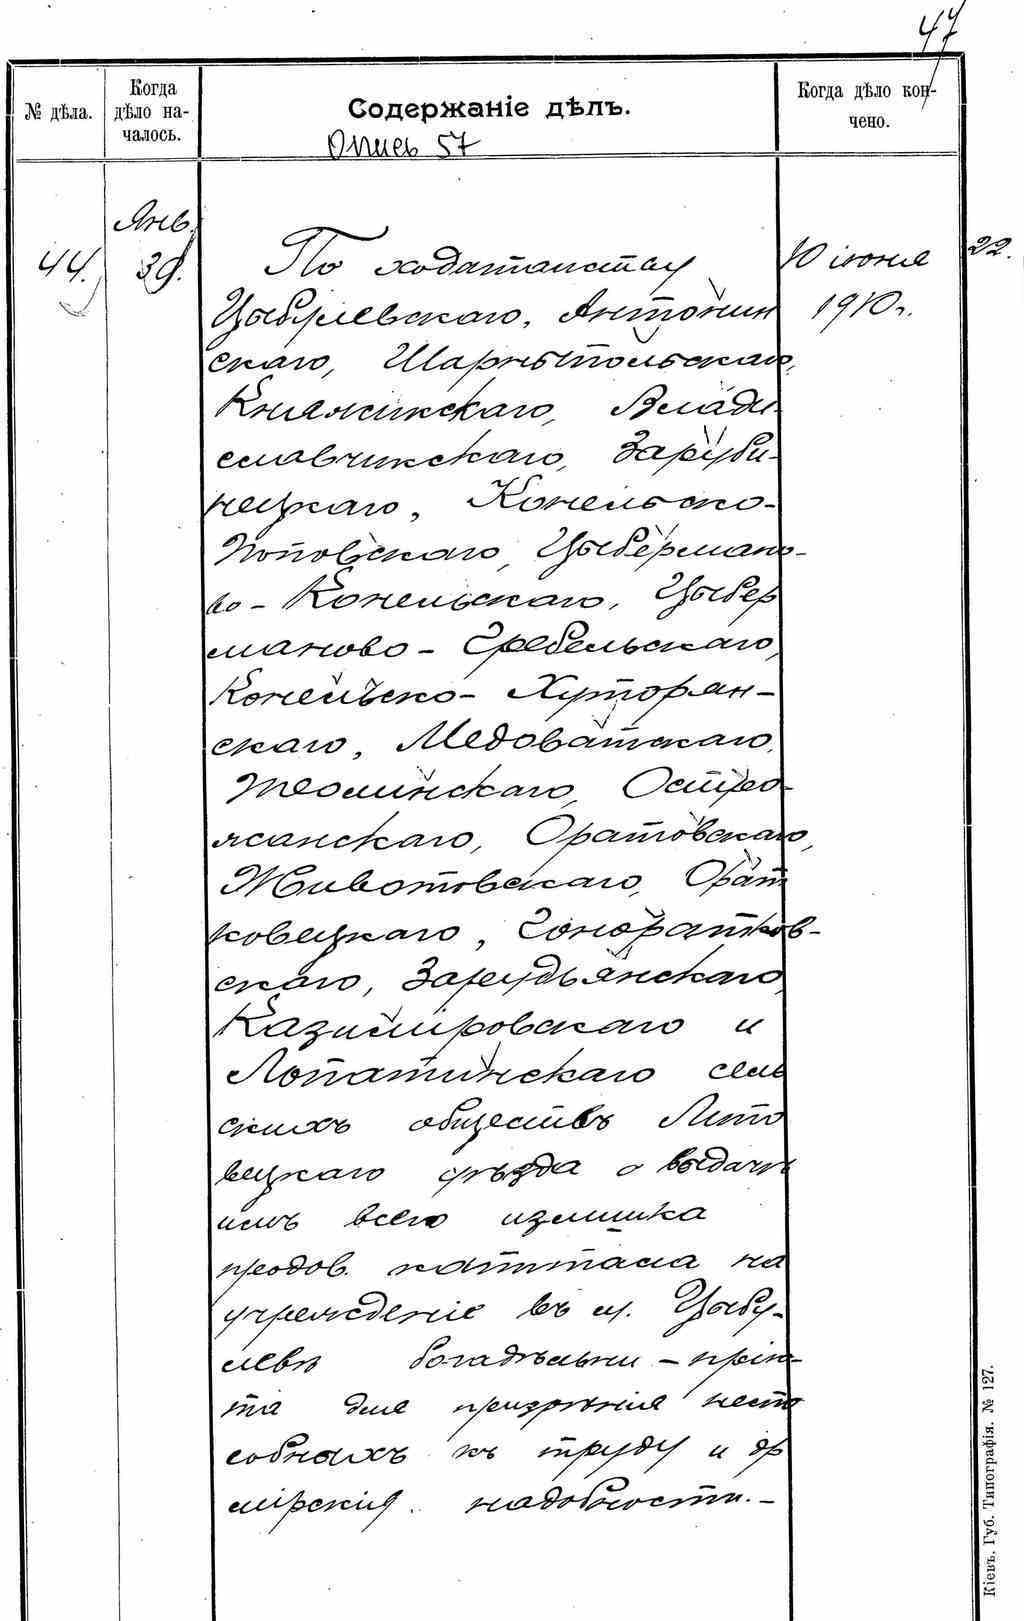 47
№ дѣла.
Когда
дѣло на-
чалось.
Содержаніе дѣлъ.
Когда дѣло кон-
чено.
Опись 57
Янв.
44.
30.
По ходатайству
10 іюня
22.
Цыбулевскаго, Антонин
1910 г.
скаго, Шарнипольскаго,
Княжикскаго, Влади-
славчикскаго, Заруби-
нецкаго, Конельско-
Поповскаго, Цыберманo-
во-Конельскаго, Цыбер
маново-Гребельскаго,
Конельско-Хуторян-
скаго, Медоватскаго,
Теолинскаго, Остро-
жсанскаго, Оратовскаго,
Животовскаго, Орат
ковецкаго, Гоноратков-
скаго, Зарудьянскаго,
Казиміровскаго и
Лопатинскаго сель
скихъ обществъ Липо
вецкаго уѣзда о выдачѣ
имъ всего излишка
продов. капитала на
учрежденіе въ м. Цыбу-
левѣ богадѣльни-прію-
та для призрѣнія неспо
собныхъ къ труду и др
мірскія надобности.-
Кіевъ. Губ. Типографія. № 127.